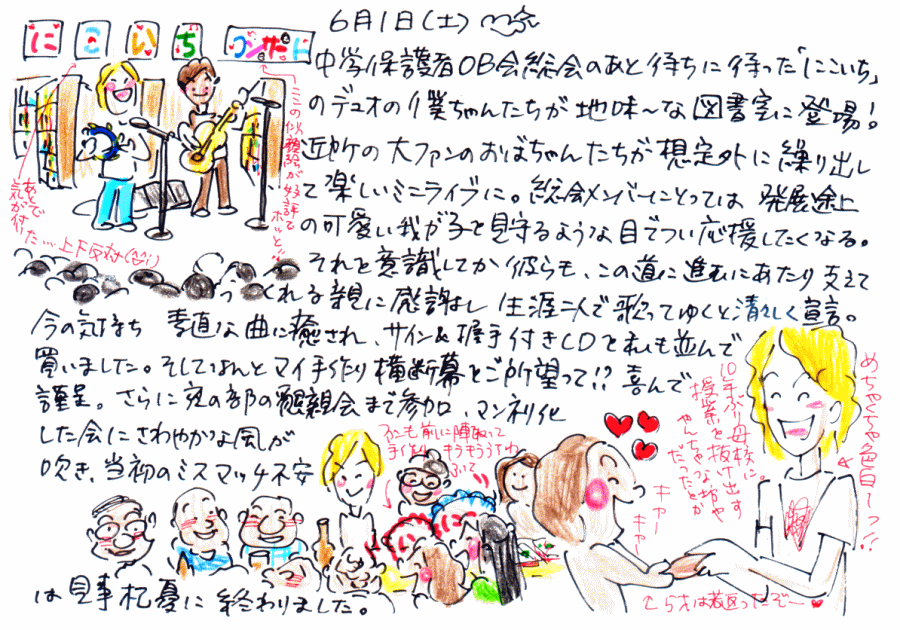 6月1日(土)
にこいち コンサート
中学保護者OB会総会のあと待ちに待った「にこいち」
のデュオの僕ちゃんたちが地味〜な図書室に登場!
近所の大ファンのおばちゃんたちが想定外に繰り出し
て楽しいミニライブに。総会メンバーにとっては発展途上
の可愛い我が子を見守るような目でつい応援したくなる。
それを意識してか彼らも、この道に進むにあたり支えて
くれる親に感謝し生涯二人で歌ってゆくと清々しく宣言。
今の気持ち 素直な曲に癒され、サイン&握手付きCDを私も並んで
買いました。そしてなんとマイ手作り横断幕をご所望って!?喜んで
謹呈。さらに夜の部の懇親会まで参加、マンネリ化
した会にさわやかな風が
吹き、当初のミスマッチ不安
は見事杞憂に終わりました。
ここの似顔絵が好評で
ホッと!
あとで
気が付いた…上下反対(笑)
10年ぶり母校に。
授業を抜け出す
やんちゃな坊や
だったとか
めちゃくちゃ色白〜っ!!
キャー
キャー